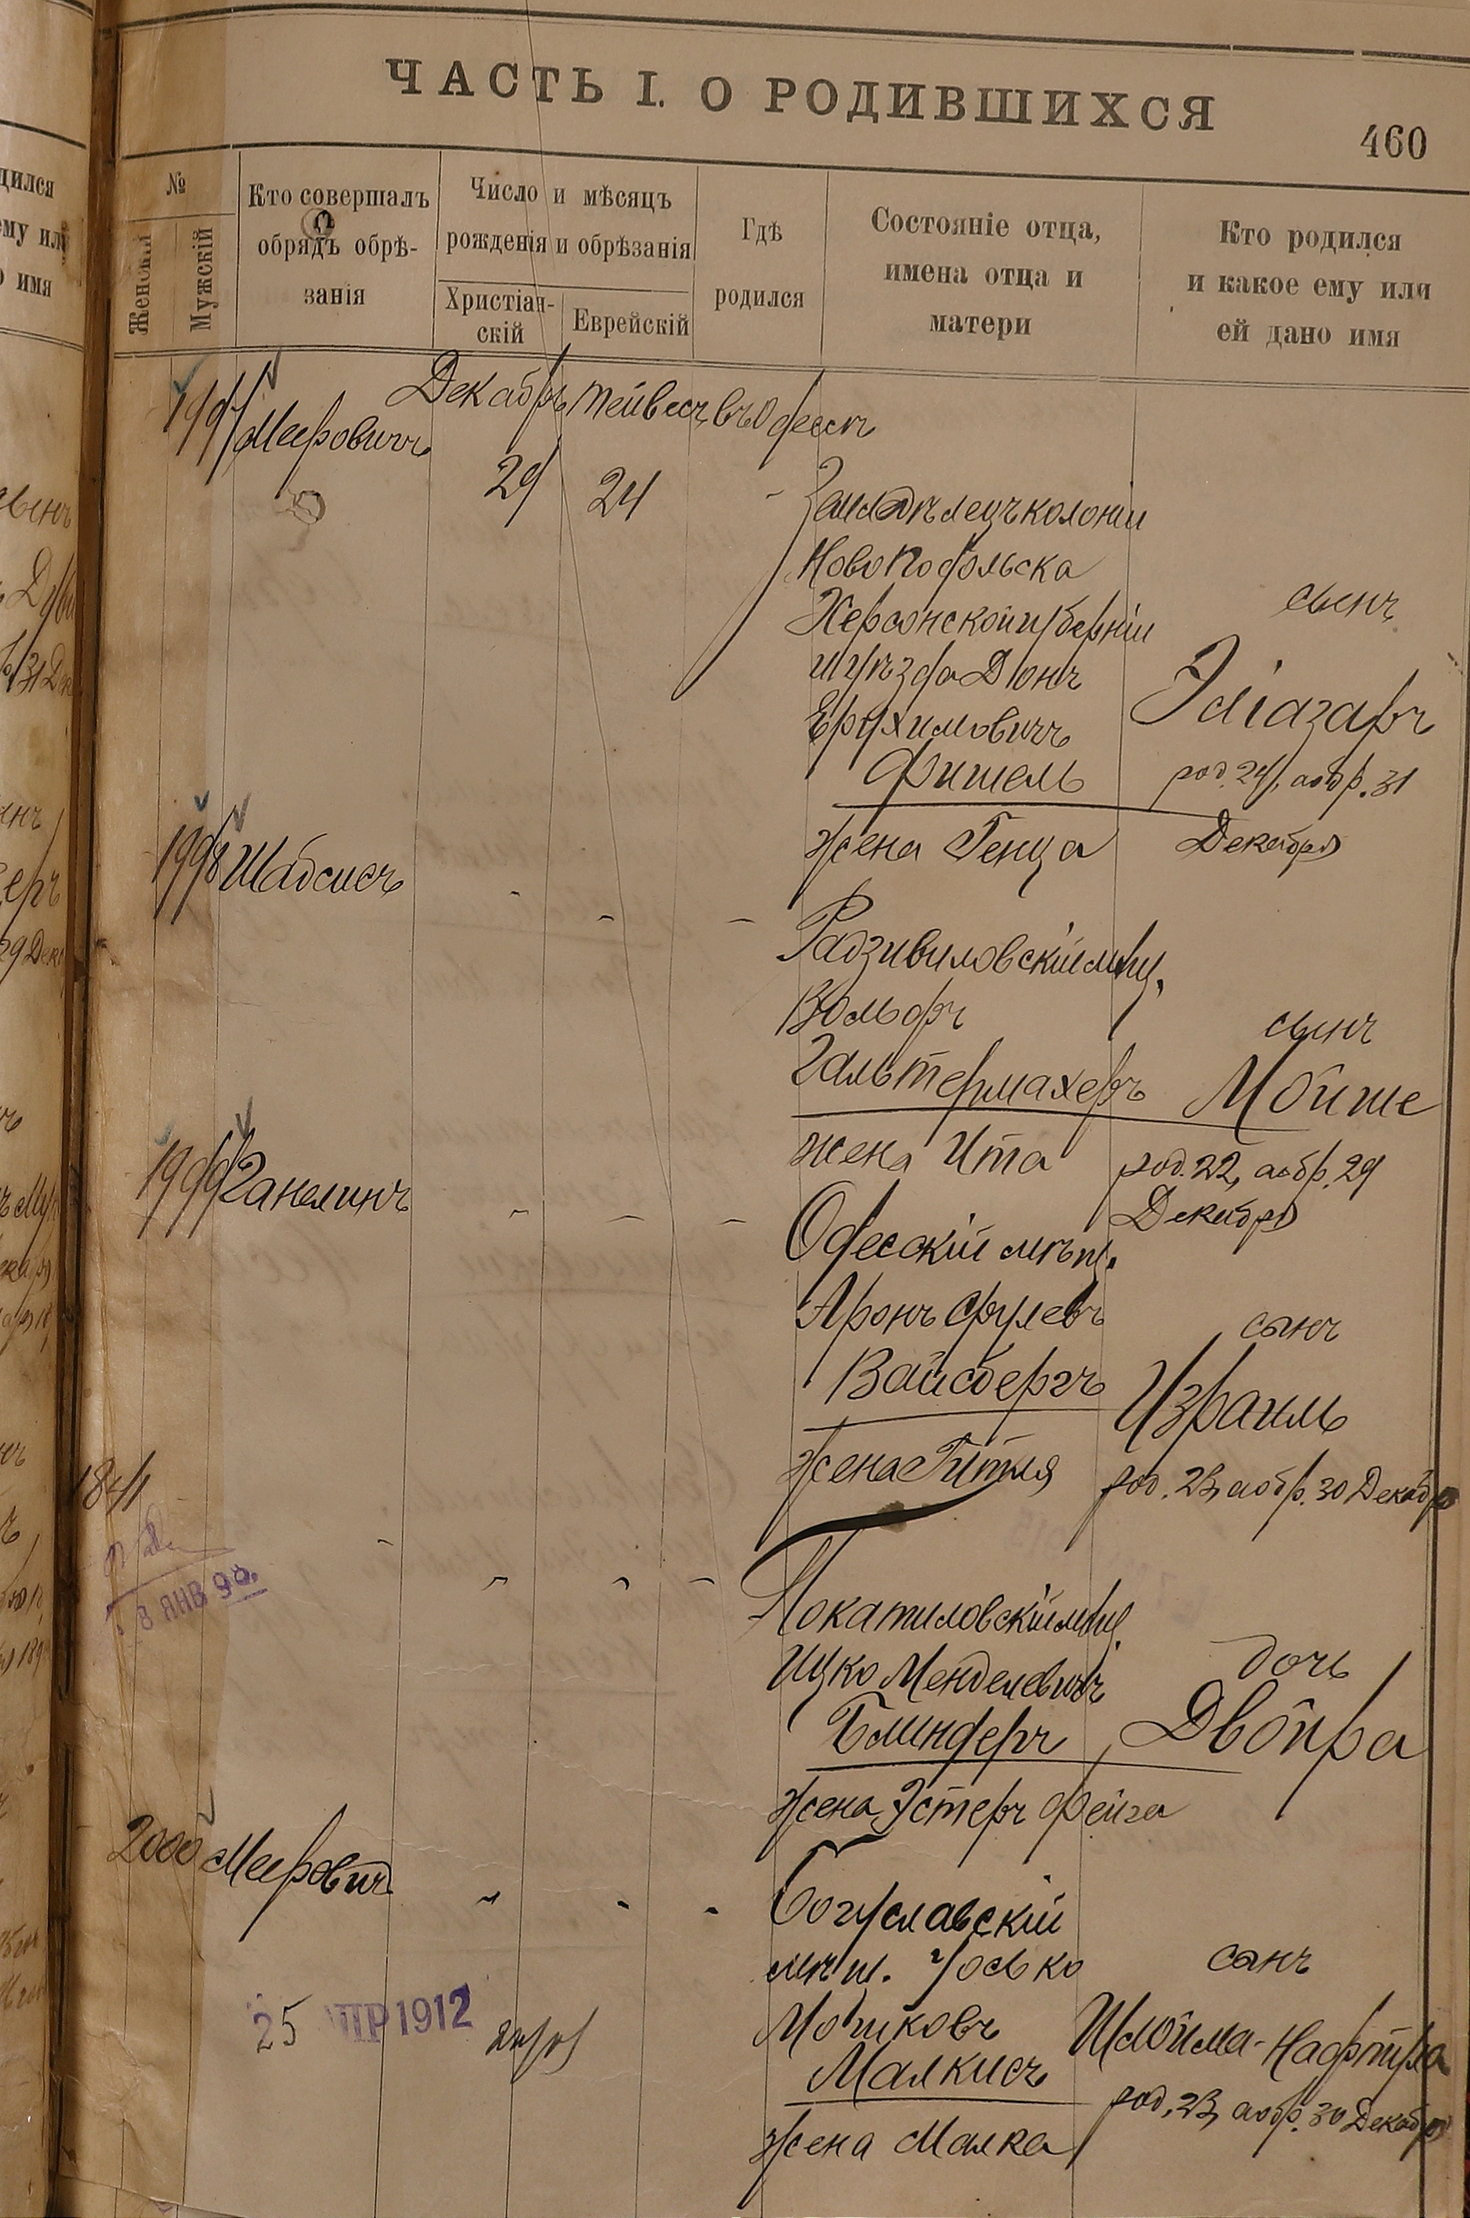 ЧАСТЬ I. О РОДИВШИХСЯ
460
№
Женскій
Мужскій
Кто совершалъ
обрядъ обрѣ-
занія
Число и мѣсяцъ
рожденія и обрѣзанія
Христіан-
скій
Еврейскій
Гдѣ
родился
Состояніе отца,
имена отца и
матери
Кто родился
и какое ему или
ей дано имя
1997
Меровичъ
Декабрь
Тейвесъ
въ Одессѣ
29
24
Земледѣлецъ колоніи
Новоподольска
Херсонской губерніи
и уѣзда Діонъ
Ерухимовичъ
Фишель
жена Генца
сынъ
Эліазаръ
род. 24, а обр. 31
Декабря
1998
Шабсисъ
Радзивиловскій мѣщ.
Вольфъ
Гальтермахеръ
жена Ита
сынъ
Мойше
род. 22, а обр. 29
Декабря
1999
Ганелинъ
Одесскій мѣщ.
Аронъ Срулевъ
Вайсбергъ
жена Гитля
сынъ
Израиль
род. 23, а обр. 30 Декабр
1841
8 ЯНВ 98.
Покатиловскій мѣщ.
Ицко Менделевичъ
Блиндеръ
жена Эстеръ Фейга
дочь
Двойра
2000
Меерович
Богуславскій
мѣщ. Іосько
Мошковъ
Малкисъ
жена Малка
сынъ
Шлойма-Нафтула
род. 23, а обр. 30 Декабр
25 АПР 1912